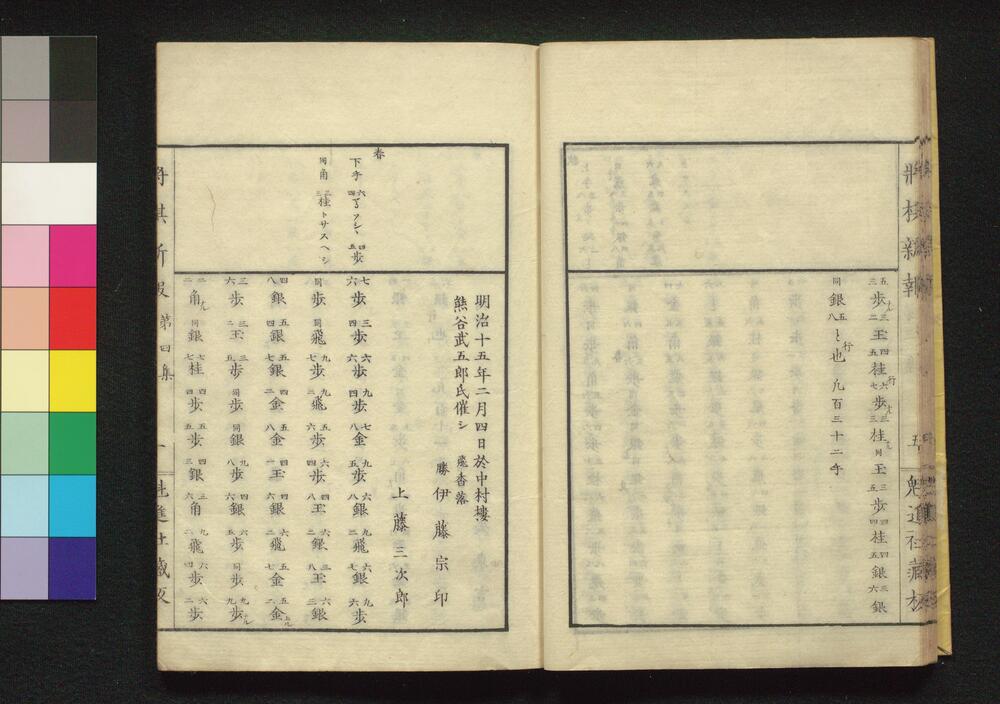 將棋新報
五
魁進社藏板
五三歩ナル 三二王 四五桂行 六七歩ナル 三三桂ナル 同王 三五歩 四四桂 四五銀 三六銀
同銀 五八と行也 凡百三十二手
春
下手
同角 三二桂トサスヘシ
明治十五年二月四日於中村樓
熊谷武五郎氏催シ 飛香落
勝 伊藤宗印
上藤三次郎
七六歩 三四歩 六六歩 九四歩 七八金 九五歩 六八銀 九二飛 六七銀 九六歩
同歩 同飛 九七歩 九二飛 五六歩 六四歩 四八王 六二銀 三八王 六三銀
四八銀 五四銀 五七銀 三二金 五八金 四一王 四六銀 六二飛 金 五二金上ル
三六歩 三二王 三五歩 同歩 同銀 八四歩 四六銀 六五歩 同歩 九歩ナル
二二角ナル 同銀 七七桂 四四歩 五五歩 四三銀 三六角 九二飛 六四歩 六二歩
将棋新報第四集
一
魁進社藏板